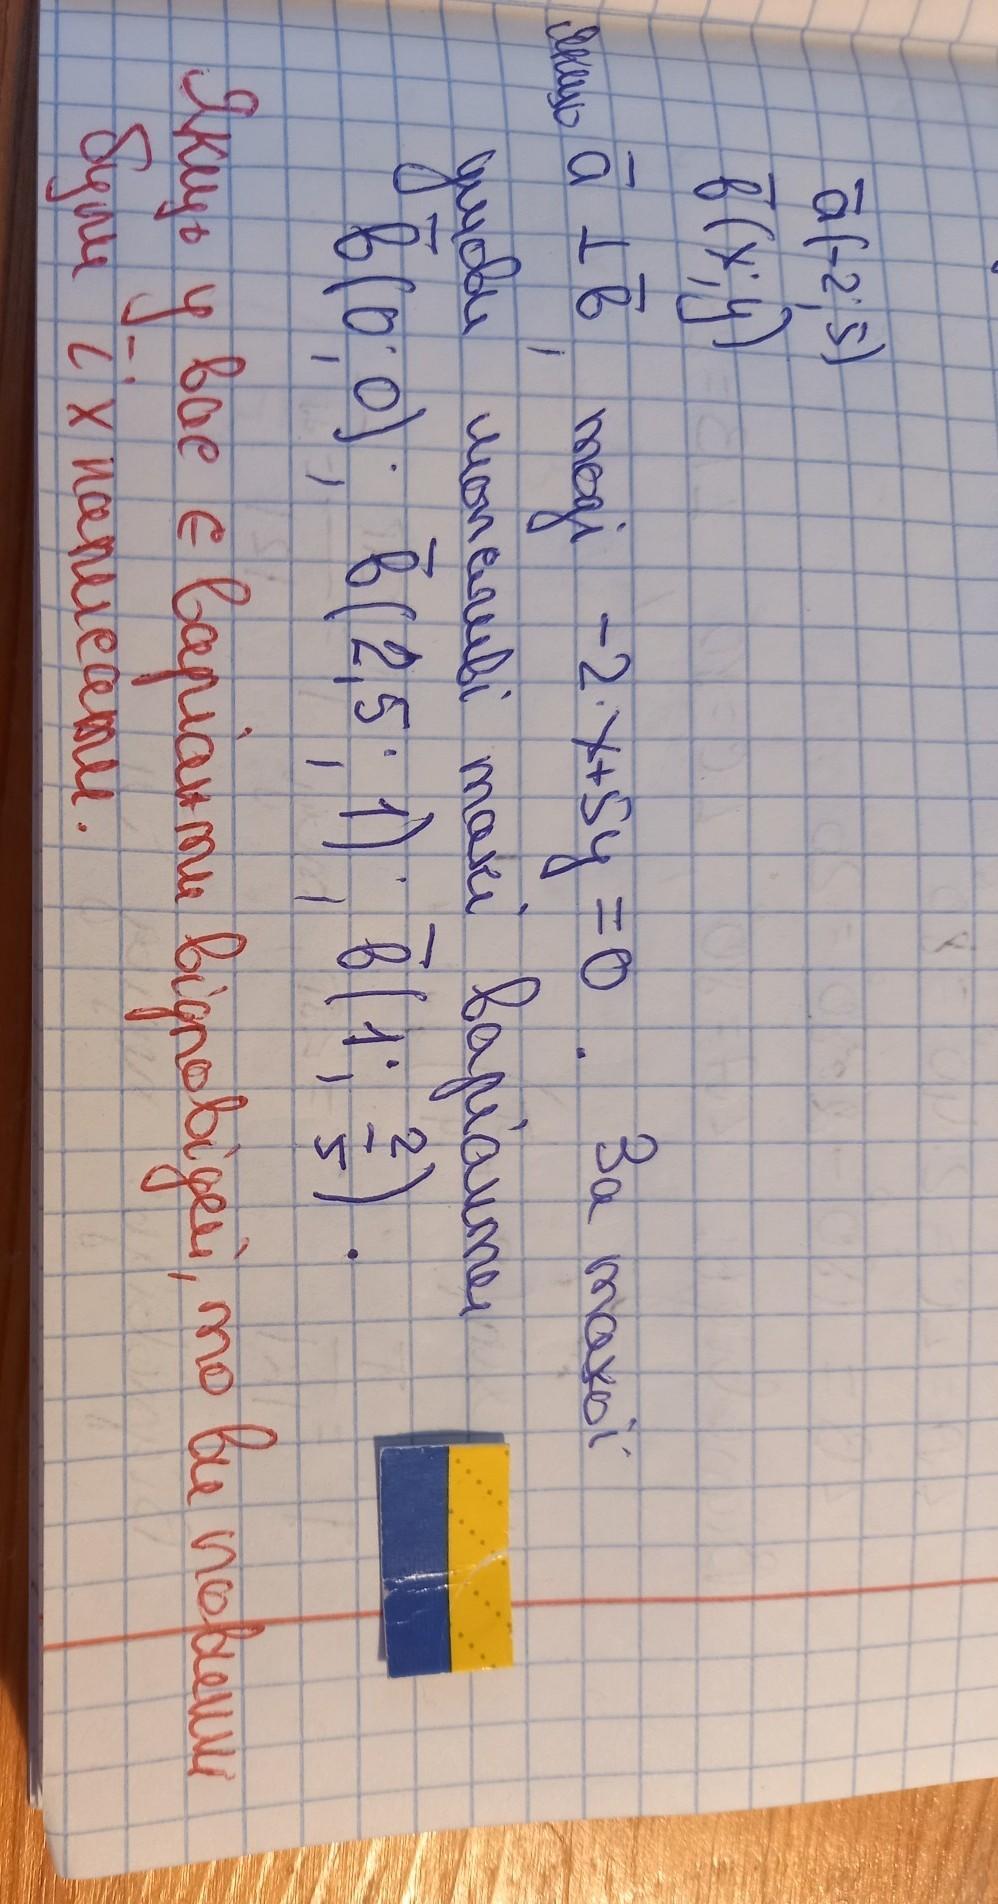 ā(-2; 5)
b̄(x; y)
Якщо ā ⊥ b̄, тоді -2·x+5y=0. За такої
умови можливі такі варіанти
b̄(0; 0); b̄(2,5; 1); b̄(1; 2/5).
Якщо у вас є варіанти відповідей, то ви повинні
були їх написати.